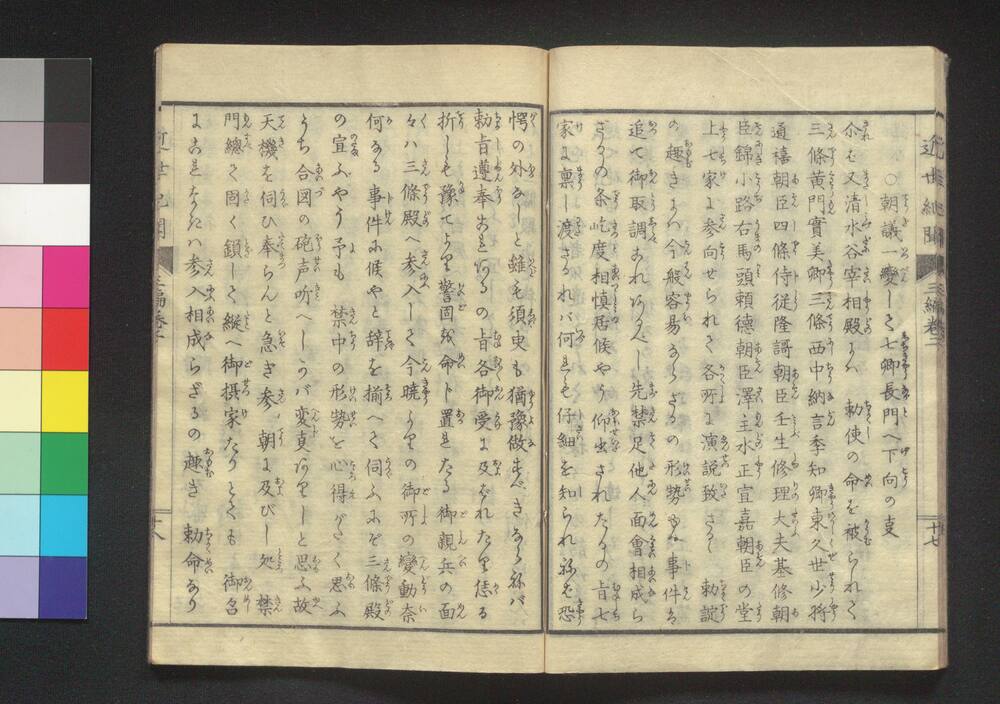 近世紀聞 三編巻二
○朝議一變して七卿長門へ下向の事
尒れば又清水谷宰相殿には 勅使の命を被られて
三條黄門實美卿三條西中納言季知卿東久世少将
通禧朝臣四條侍従隆謌朝臣壬生修理大夫基修朝
臣錦小路右馬頭頼徳朝臣澤主水正宣嘉朝臣の堂
上七家に参向せられて各所に演説致さるゝ 勅諚
の趣きには今般容易ならざるの形勢や事件を
追て御取調あれバ先禁足他人面會相成ら
ざるの条屹度相慎居候やう仰出されたるの旨七
家に禀し渡さるれバ何れも仔細を知られねば恐
十七
愕の外なしと雖も須臾も猶豫做すべきならねバ
勅旨遵奉あるの旨各御受に及ばれたり恁る
折しも豫てより警固を命ト置れたる御親兵の面
々ハ三條殿へ参入して今暁よりの御所の變動奈
何なる事件に候やと辞を揃へて伺ふにぞ三條殿
の宣ふやう予も 禁中の形勢を心得がたく思ふ
うち合図の砲声听へしうバ変真なりしと思ふ故
天機を伺ひ奉らんと急ぎ参 朝に及びし処 禁
門總て固く鎖して縦へ御摂家たりとても 御名
になき方ハ参入相成らざるの趣き 勅命なり
近世紀聞 三編巻二
十八